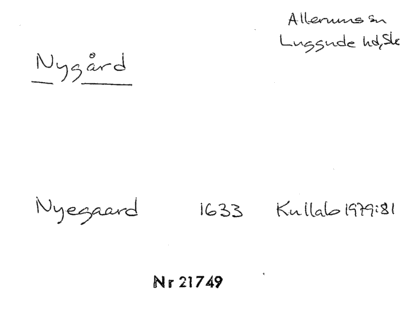 Allerums sn
Luggude hd, Sk
Nygård
Nyegaard 1633 Kullab 1979:81
Nr 21749